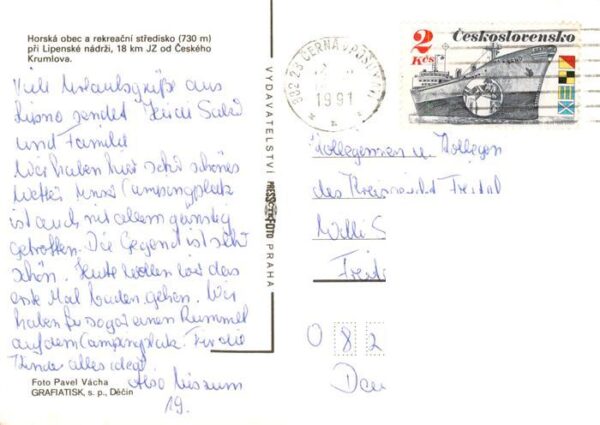 Horská obec a rekreační středisko (730 m)
při Lipenské nádrži, 18 km JZ od Českého
Krumlova.
Viele Urlaubsgrüße aus
Lipno sendet Heidi
und Familie
Wir haben hier sehr schönes
Wetter. Unser Campingplatz
ist auch mit allem günstig
getroffen. Die Gegend ist sehr
schön. Heute wollen wir das
erste Mal baden gehen. Wir
haben sogar einen Rummel
auf dem Campingplatz. Für die
Kinder alles ideal.
Also bis zum
19.
Foto Pavel Vácha
GRAFIATISK, s. p., Děčín
VYDAVATELSTVÍ PRESSFOTO PRAHA
382 23 ČERNÁ V POŠUMAVÍ
1991
2 Kčs
Československo
Kolleginnen u. Kollegen
des Freital
Willi S
Freita
0 8 2